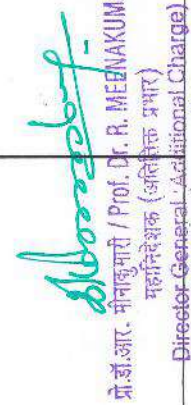 प्रो.डॉ.आर. मीनाकुमारी / Prof. Dr. R. MEENAKUM
महानिदेशक (अतिरिक्त प्रभार)
Director General (Additional Charge)